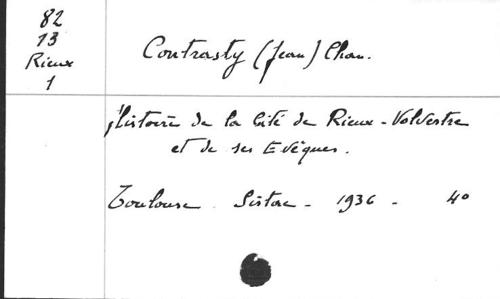 82
13
Rieux
1
Contrasty (Jean) Chan.
Histoire de la Cité de Rieux-Volvestre
et de ses Evêques.
Toulouse Sistac - 1936 - 4º